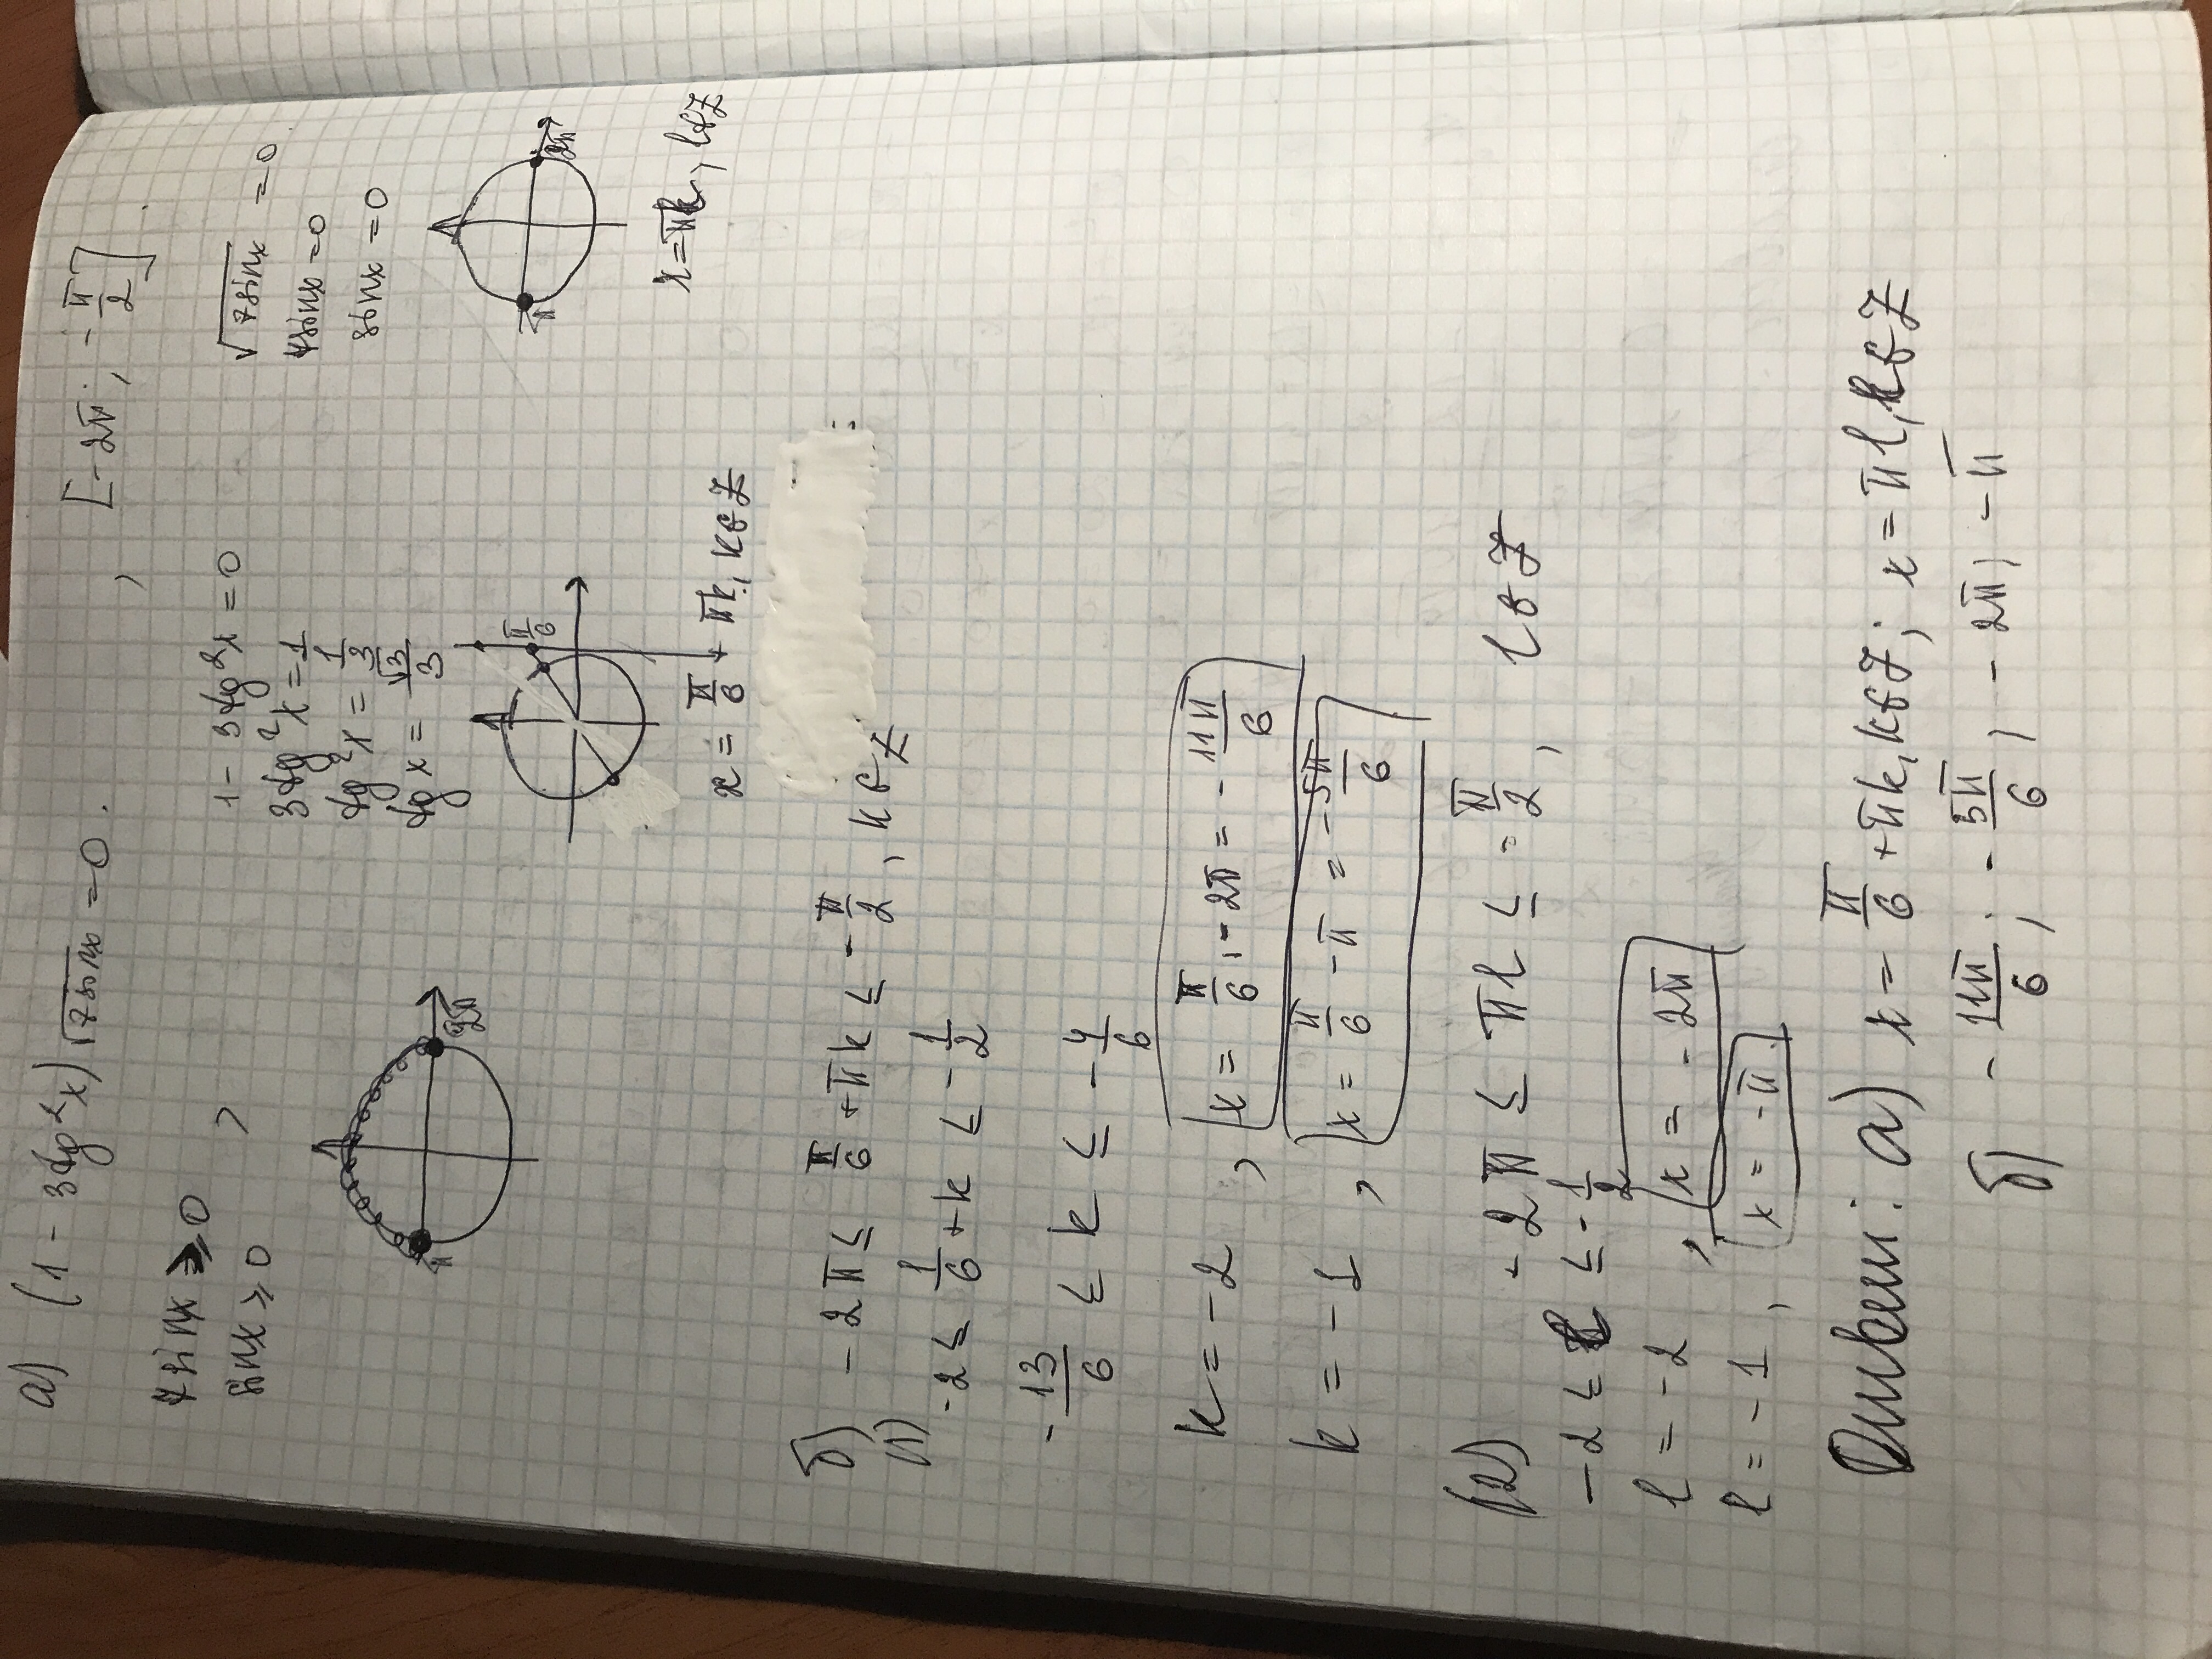 а) (1 - 3tg²x)√7sinx = 0. , [-2π; -π/2].
7sinx ≥ 0
sinx ≥ 0
π 2π
1 - 3tg²x = 0
3tg²x = 1
tg²x = 1/3
tgx = √3/3
π/6
x = π/6 + πk, k∈Z
√7sinx = 0
7sinx = 0
sinx = 0
π 2π
x = πl, l∈Z
б) -2π ≤ π/6 + πk ≤ -π/2, k∈Z
(1)
-2 ≤ 1/6 + k ≤ -1/2
-13/6 ≤ k ≤ -4/6
k = -2, x = π/6 - 2π = -11π/6
k = -1, x = π/6 - π = -5π/6
(2) -2π ≤ πl ≤ -π/2, l∈Z
-2 ≤ l ≤ -1/2
l = -2, x = -2π
l = -1, x = -π.
Ответ: а) x = π/6 + πk, k∈Z; x = πl, l∈Z
б) -11π/6; -5π/6; -2π; -π